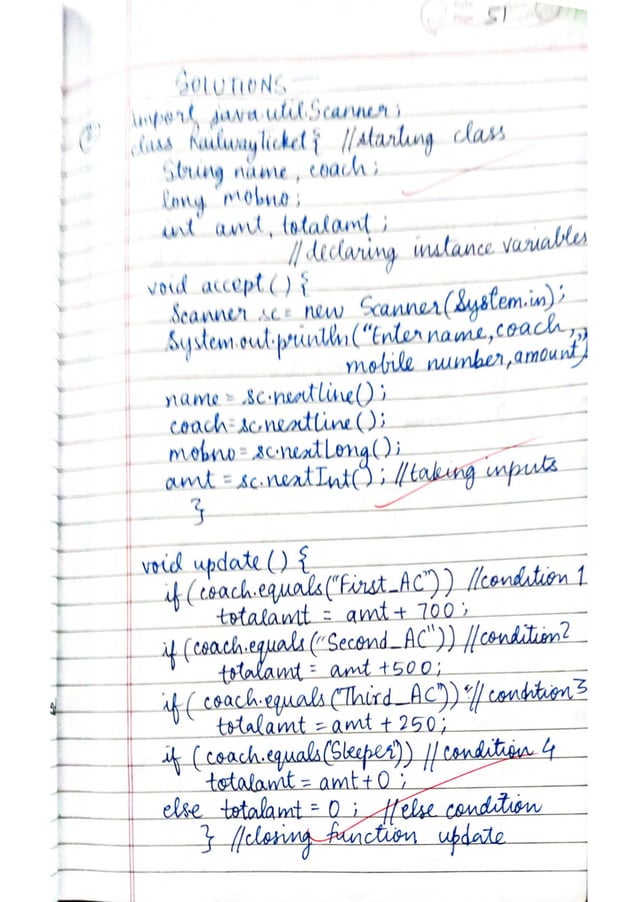 51
SOLUTIONS
import java.util.Scanner;
class RailwayTicket{ //starting class
String name, coach;
long mobno;
int amt, totalamt;
//declaring instance variables
void accept() {
Scanner sc = new Scanner(System.in);
System.out.println("Enter name, coach,
mobile number, amount")
name = sc.nextline();
coach = sc.nextline();
mobno = sc.nextLong();
amt = sc.nextInt(); //taking inputs
}
void update() {
if (coach.equals("First_AC")) //condition 1
totalamt = amt + 700;
if (coach.equals("Second_AC")) //condition2
totalamt = amt +500;
if (coach.equals("Third_AC")) //condition 3
totalamt = amt + 250;
if (coach.equals("Sleeper")) //condition 4
totalamt = amt+0;
else totalamt = 0; //else condition
} //closing function update